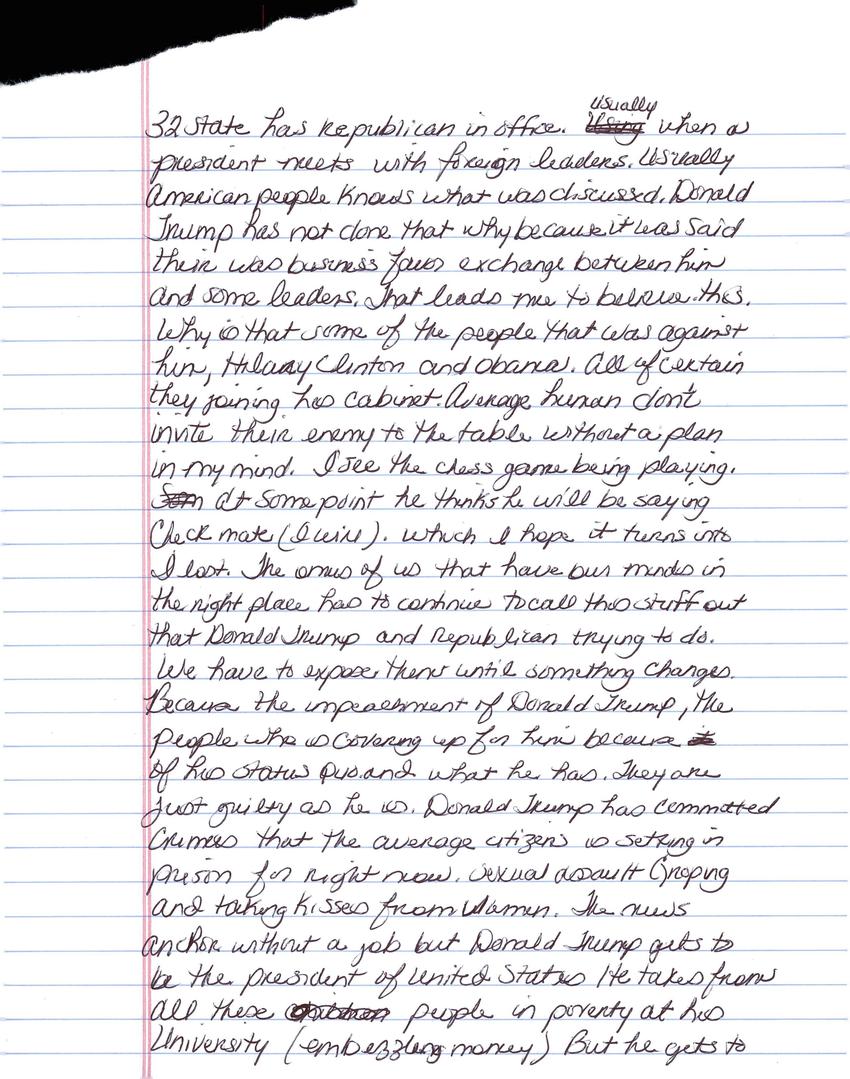 32 state has Republican in office. Usually when a
president meets with foreign leaders. Usually
American people knows what was discussed. Donald
Trump has not done that why because it was said
their was business favor exchange between him
and some leaders. That leads me to believe this.
Why is that some of the people that was against
him, Hilary Clinton and Obama. All of certain
they joining his cabinet. Average human don't
invite their enemy to the table without a plan
in my mind. I see the chess game being playing.
At some point he thinks he will be saying
Check mate (I win). Which I hope it turns into
I lost. The onus of us that have our minds in
the right place has to continue to call this stuff out
that Donald Trump and Republican trying to do.
We have to expose them until something changes.
Because the impeachment of Donald Trump, the
people who is covering up for him because
of his status quo and what he has. They are
just guilty as he is. Donald Trump has committed
Crimes that the average citizens is setting in
prison for right now. Sexual assault Groping
and taking kisses from Women. The news
anchor without a job but Donald Trump gets to
be the president of United States He takes from
all these people in poverty at his
University (embezzling money) But he gets to